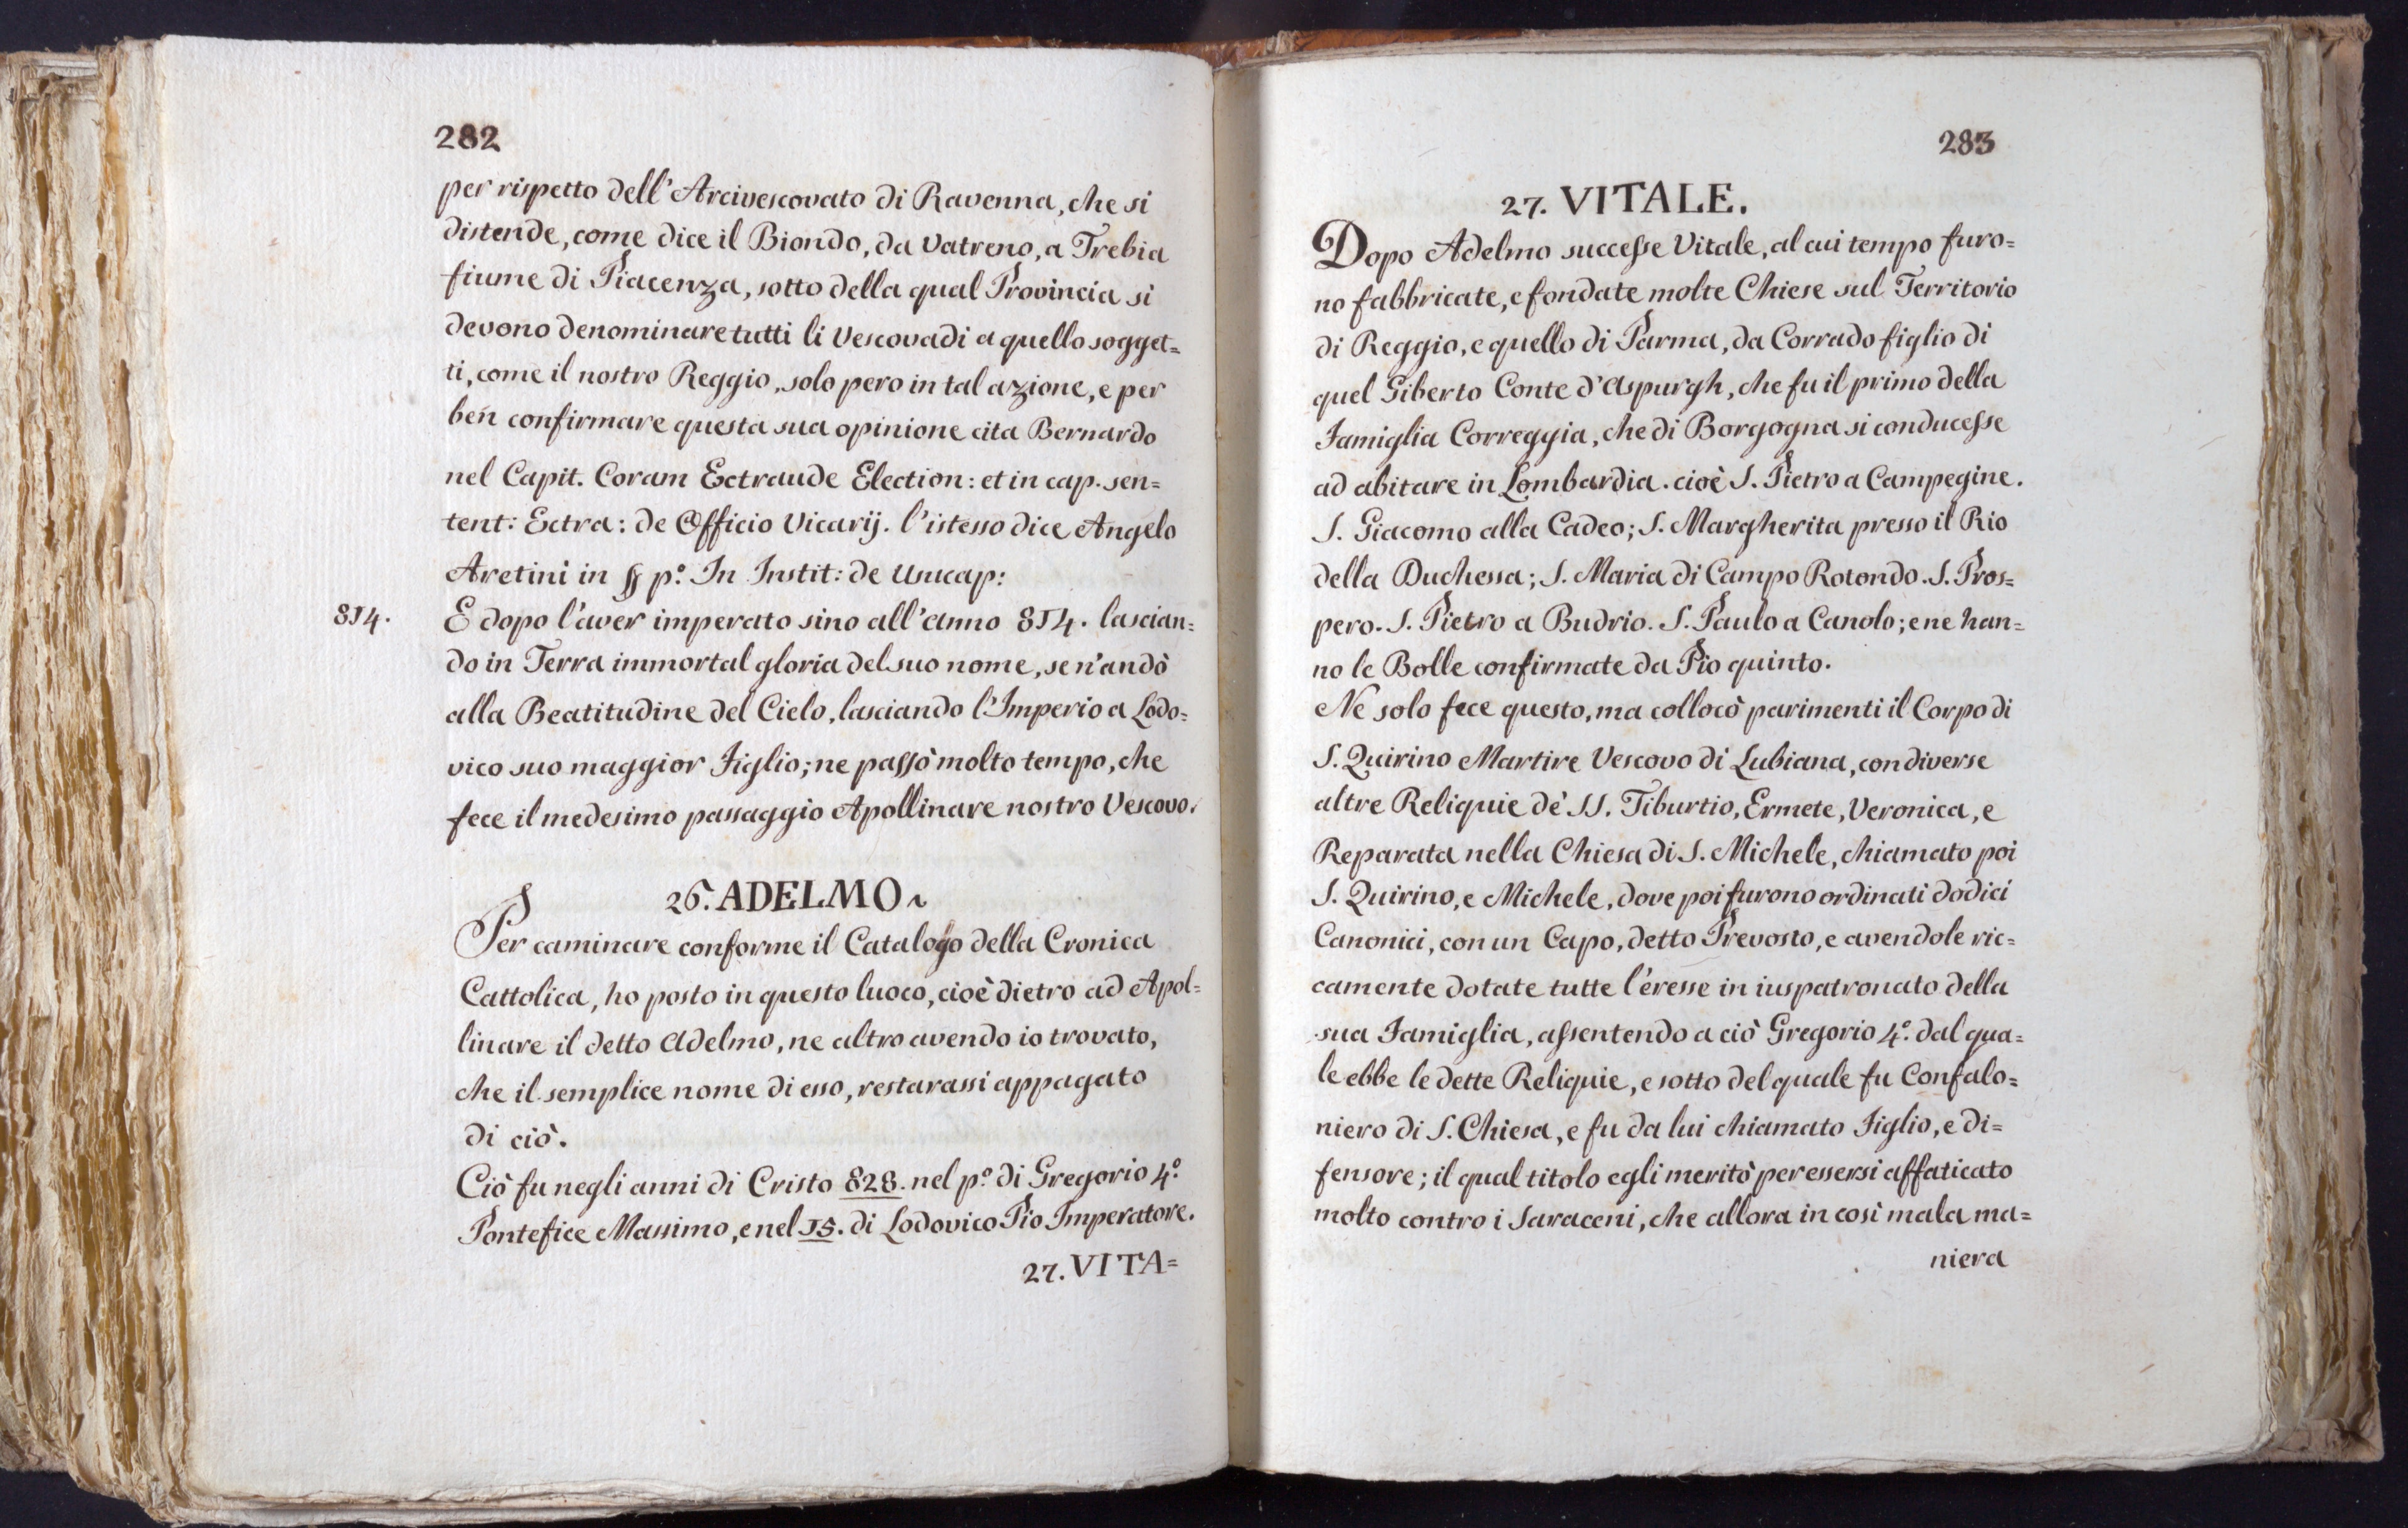 282
per rispetto dell'Arcivescovato di Ravenna, che si
distende, come dice il Biondo, da Vatreno, a Trebia
fiume di Piacenza, sotto della qual Provincia si
devono denominare tutti li Vescovadi a quello sogget=
ti, come il nostro Reggio, solo pero in tal azione, e per
ben confirmare questa sua opinione cita Bernardo
nel Capit. Coram Ectraude Election: et in cap. sen=
tent: Ectra: de Officio Vicarij. l'istesso dice Angelo
Aretini in § p.º In Instit: de Usucap:
814. E dopo l'aver imperato sino all'anno 814. lascian=
do in Terra immortal gloria del suo nome, se n'andò
alla Beatitudine del Cielo, lasciando l'Imperio a Lodo=
vico suo maggior Figlio; ne passò molto tempo, che
fece il medesimo passaggio Apollinare nostro Vescovo.
26. ADELMO
Per caminare conforme il Catalogo della Cronica
Cattolica, ho posto in questo luoco, cioè dietro ad Apol=
linare il detto Adelmo, ne altro avendo io trovato,
che il semplice nome di esso, restarassi appagato
di ciò.
Ciò fu negli anni di Cristo 828. nel p.º di Gregorio 4.º
Pontefice Massimo, e nel 15. di Lodovico Pio Imperatore.
27. VITA=
283
27. VITALE.
Dopo Adelmo successe Vitale, al cui tempo furo=
no fabbricate, e fondate molte Chiese sul Territorio
di Reggio, e quello di Parma, da Corrado figlio di
quel Giberto Conte d'Aspurgh, che fu il primo della
Famiglia Correggia, che di Borgogna si conducesse
ad abitare in Lombardia. cioè S. Pietro a Campegine.
S. Giacomo alla Cadeo; S. Margherita presso il Rio
della Duchessa; S. Maria di Campo Rotondo. S. Pros=
pero. S. Pietro a Budrio. S. Paulo a Canolo; e ne han=
no le Bolle confirmate da Pio quinto.
Ne solo fece questo, ma collocò parimenti il Corpo di
S. Quirino Martire Vescovo di Lubiana, con diverse
altre Reliquie de' SS. Tiburtio, Ermete, Veronica, e
Reparata nella Chiesa di S. Michele, chiamato poi
S. Quirino, e Michele, dove poi furono ordinati dodici
Canonici, con un Capo, detto Prevosto, e avendole ric=
camente dotate tutte l'eresse in iuspatronato della
sua Famiglia, assentendo a ciò Gregorio 4.º dal qua=
le ebbe le dette Reliquie, e sotto del quale fu Confalo=
niero di S. Chiesa, e fu da lui chiamato Figlio, e di=
fensore; il qual titolo egli meritò per essersi affaticato
molto contro i Saraceni, che allora in così mala ma=
niera